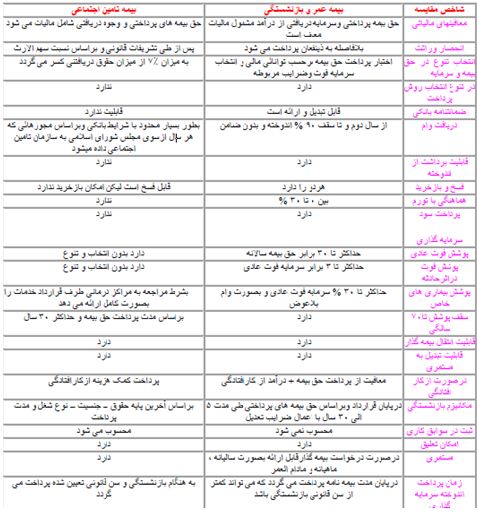 شاخص مقایسه
بیمه عمر و بازنشستگی
بیمه تامین اجتماعی
معافیتهای مالیاتی
حق بیمه پرداختی وسرمایه دریافتی از درآمد مشمول مالیات
معاف است
حق بیمه های پرداختی و وجوه دریافتی شامل مالیات می شود
انحصار وراثت
بلافاصله به ذینفعان پرداخت می شود
پس از طی تشریفات قانونی و براساس نسبت سهم الارث
انتخاب تنوع در حق
بیمه و سرمایه
اختیار پرداخت حق بیمه برحسب توانائی مالی و انتخاب
سرمایه فوت وضرایب مربوطه
به میزان ۷٪ از میزان حقوق دریافتی کسر می گردد
در تنوع انتخاب روش
پرداخت
دارد
ندارد
ضمانتنامه بانکی
قابل تبدیل و ارائه است
قابلیت ندارد
دریافت وام
از سال دوم و تا سقف ۹۰ % اندوخته و بدون ضامن
بطور بسیار محدود با شرایط بانکی وبراساس مجوزهائی که
هر سال ازسوی مجلس شورای اسلامی به سازمان تامین
اجتماعی داده میشود
قابلیت برداشت از
اندوخته
دارد
ندارد
فسخ و بازخرید
هردو را دارد
قابل فسخ است لیکن امکان بازخرید ندارد
هماهنگی با تورم
بین ۰ تا ۳۰ %
ندارد
پرداخت سود
سرمایه گذاری
دارد
ندارد
پوشش فوت عادی
حداکثر تا ۳۰ برابر حق بیمه سالانه
دارد بدون انتخاب و تنوع
پوشش فوت
دراثرحادثه
حداکثر تا ۳ برابر سرمایه فوت عادی
دارد بدون انتخاب و تنوع
پوشش بیماری های
خاص
حداکثر تا ۳۰ % سرمایه فوت عادی و بصورت وام
بلاعوض
بشرط مراجعه به مراکز درمانی طرف قرارداد خدمات را
بصورت کامل ارائه می دهد
سقف پوشش تا۷۰
سالگی
دارد
براساس مدت پرداخت حق بیمه و حداکثر ۳۰ سال
قابلیت انتقال بیمه گذار
دارد
دارد
قابلیت تبدیل به
مستمری
دارد
دارد
درصورت ازکار
افتادگی
معافیت از پرداخت حق بیمه + درآمد از کارافتادگی
پرداخت کمک هزینه ازکارافتادگی
مکانیزم بازنشستگی
درپایان قرارداد وبراساس حق بیمه های پرداختی طی مدت ۵
الی ۳۰ سال با عمال ضرایب تعدیل
براساس آخرین پایه حقوق – جنسیت – نوع شغل و مدت
پرداخت
ثبت در سوابق کاری
محسوب نمی شود
محسوب می شود
امکان تعلیق
دارد
دارد
مستمری
درصورت درخواست بیمه گذارقابل ارائه بصورت سالیانه ،
ماهیانه و مادام العمر
دارد
زمان پرداخت
اندوخته سرمایه
گذاری
درپایان مدت بیمه نامه پرداخت می گردد که می تواند کمتر
از سن قانونی بازنشستگی باشد
به هنگام بازنشستگی و سن قانونی تعیین شده پرداخت می
گردد